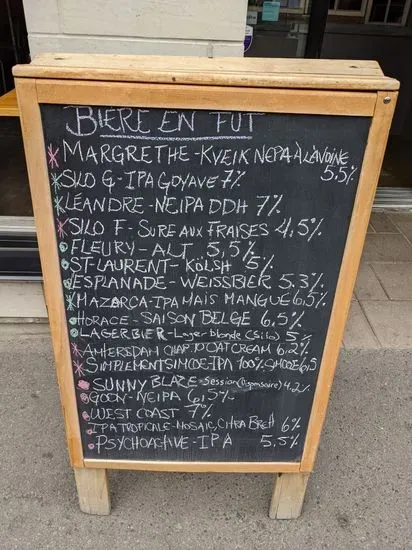 BIERE EN FUT
MARGRETHE-KVEIK NEPA À L'AVOINE
5.5%
SILO G-IPA GOYAVE 7%
LÉANDRE-NEIPA DDH 7%
SILO F-SURE AUX FRAISES 4.5%
FLEURY-ALT 5,5%
ST-LAURENT-KÖLSH 5%
ESPLANADE-WEISSBIER 5.3%
MAZARCA-IPA MAIS MANGUE 6,5%
HORACE-SAISON BELGE 6,5%
LAGERBIER-Lager blonde (Silo) 5%
AMHERSDAM CHAP.10 OAT CREAM 6.2%
SIMPLEMENT SIMCOE-IPA 100% SIMCOE 6,5
SUNNY BLAZE-Session 4.2%
GOON-NEIPA 6,5%
WEST COAST 7%
IPA TROPICALE-MOSAIC, CITRA BRETT 6%
PSYCHOACTIVE-IPA 5.5%